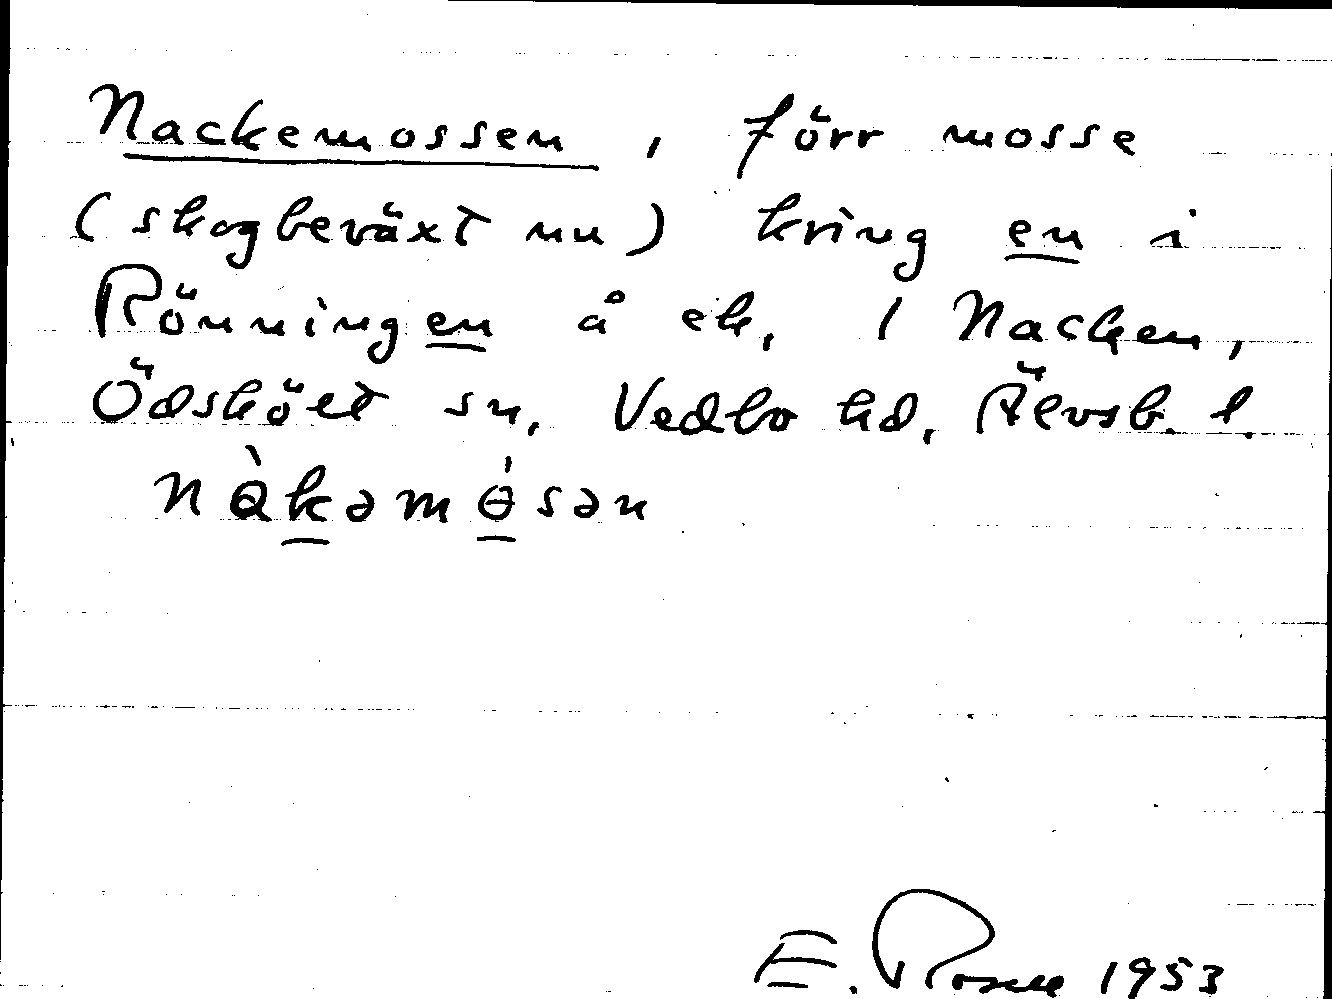 Nackemossen, förr mosse
(skogbeväxt nu) kring en i
Rönningen å ek. 1 Nacken,
Ödskölt sn, Vedbo hd, Älvsb. l.
nàkəmɵ́sən
E. Rosell 1953